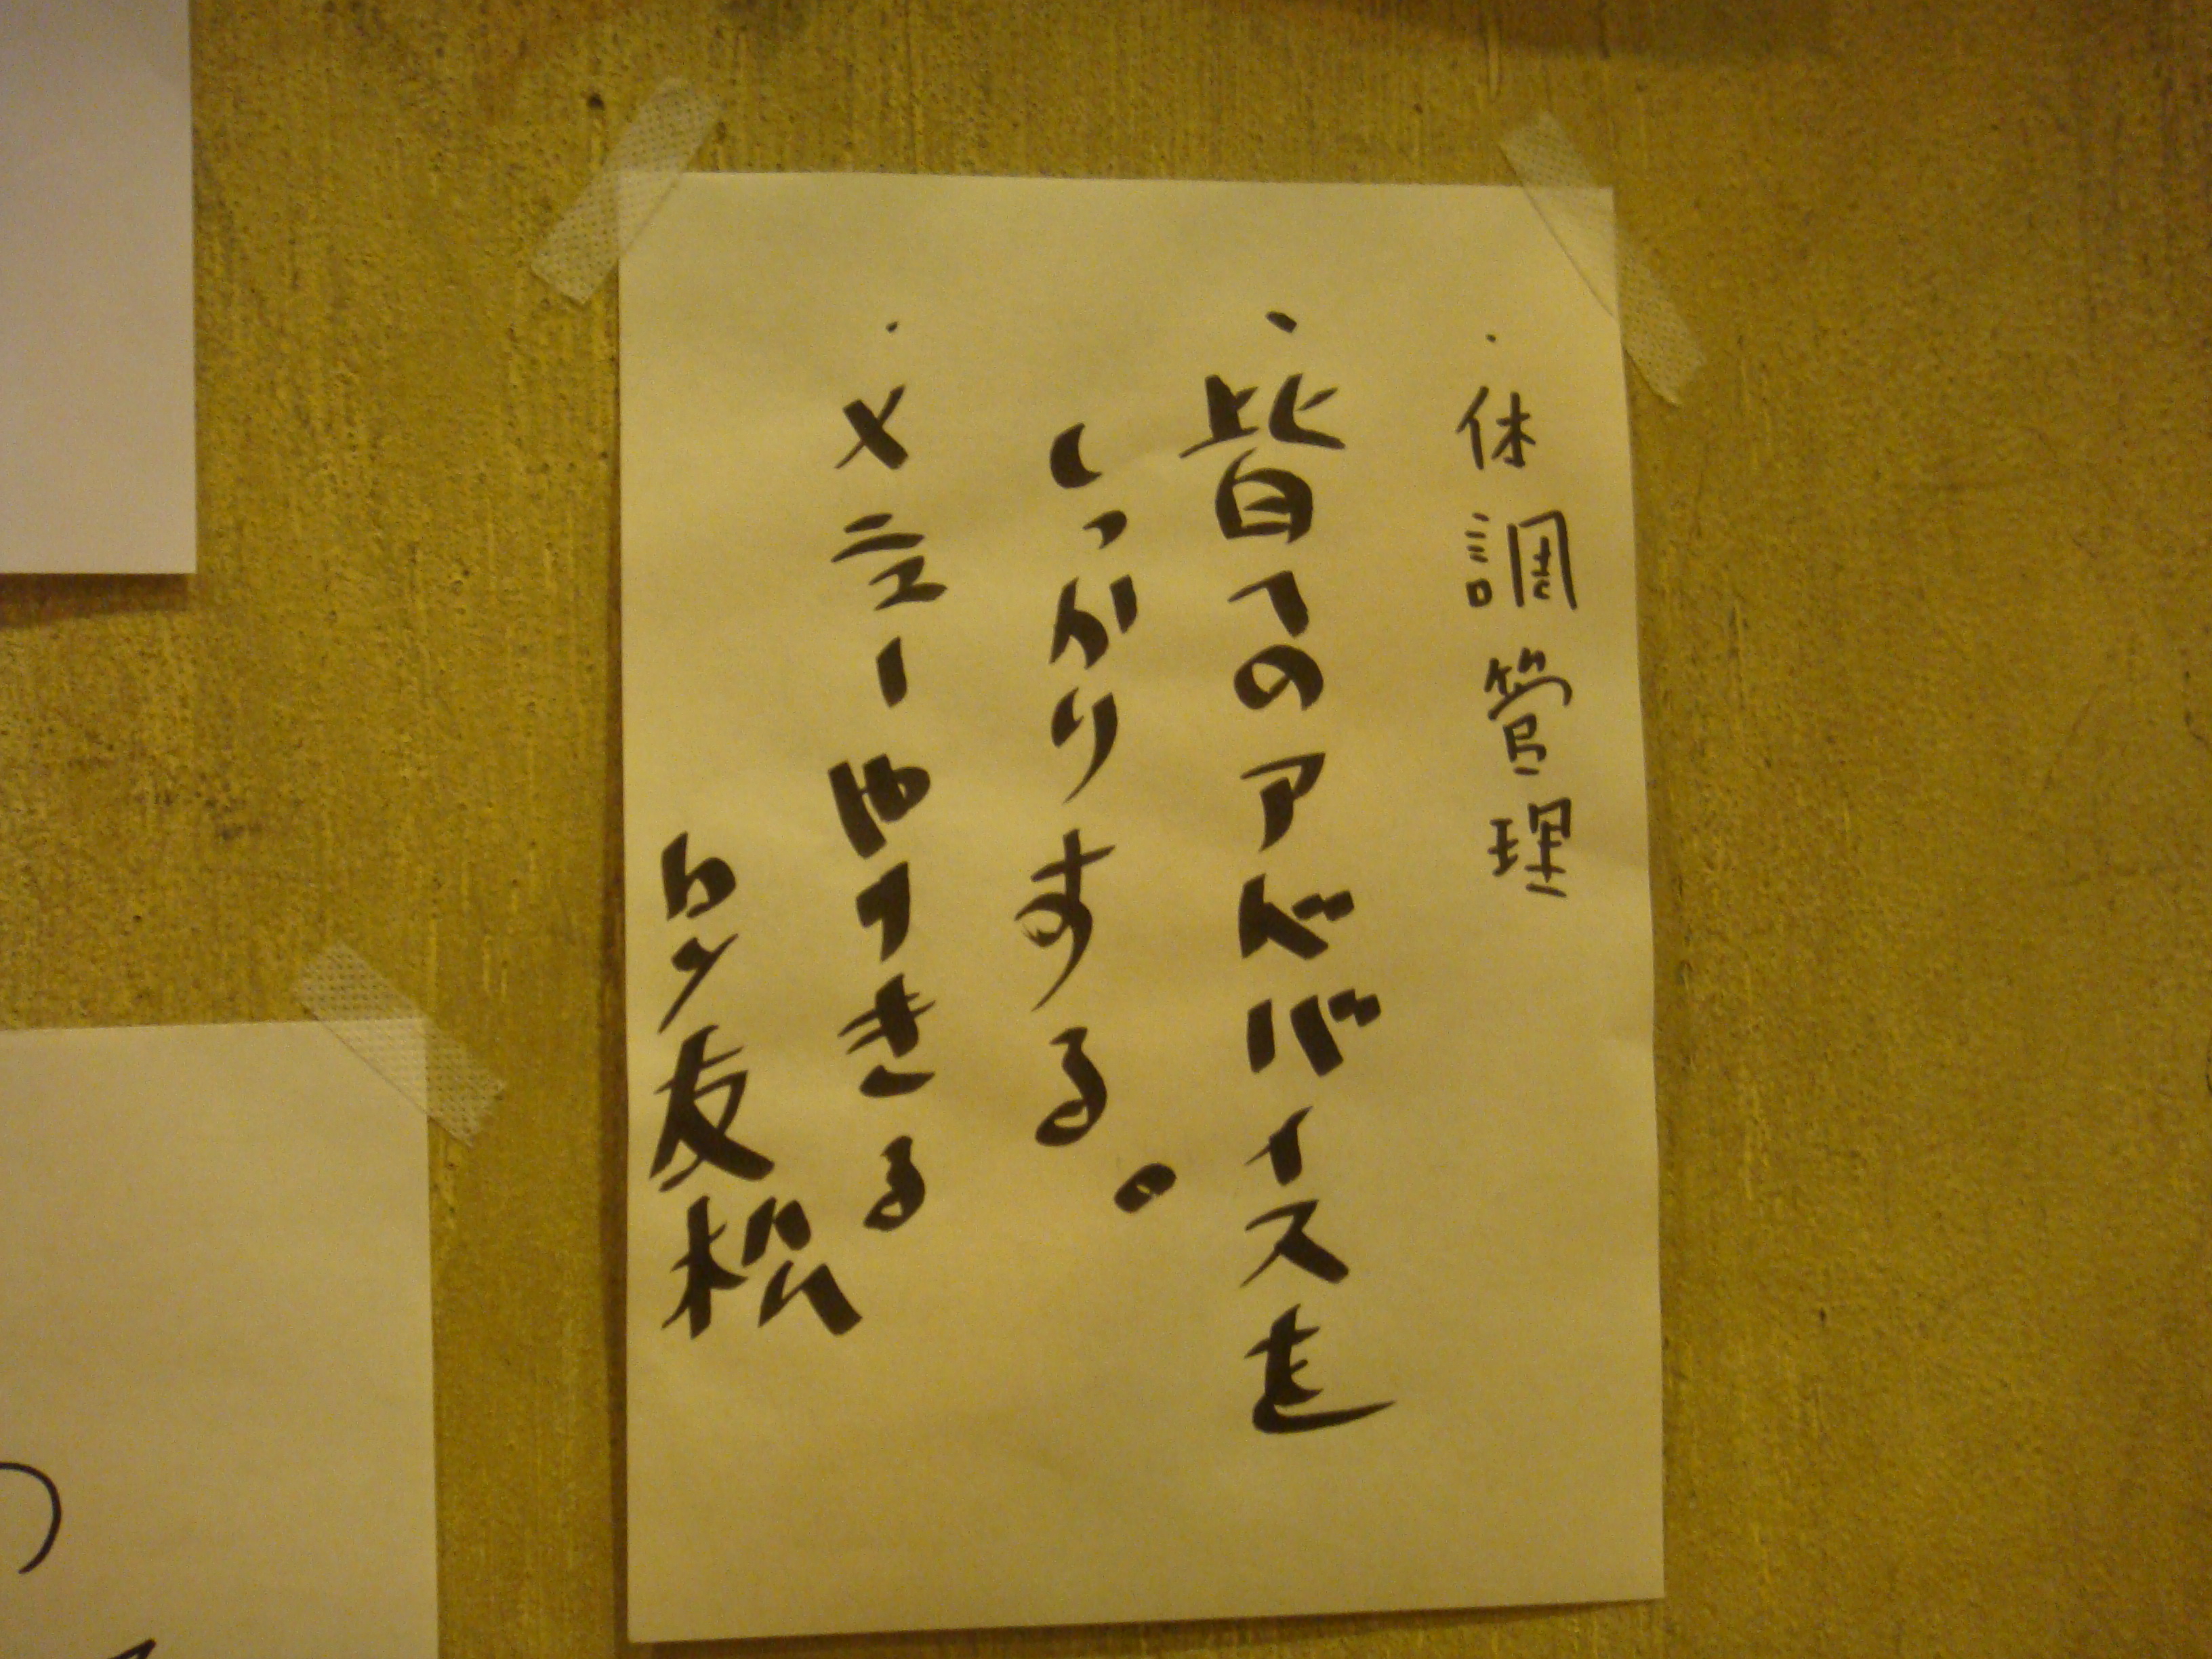 ・休調管理
・皆へのアドバイスを
しっかりする。
・メニューやりきる
ロケ友松